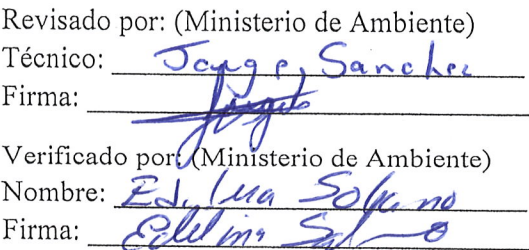 Revisado por: (Ministerio de Ambiente)
Técnico: Jorge Sanchez
Firma:
Verificado por: (Ministerio de Ambiente)
Nombre: Solano
Firma: